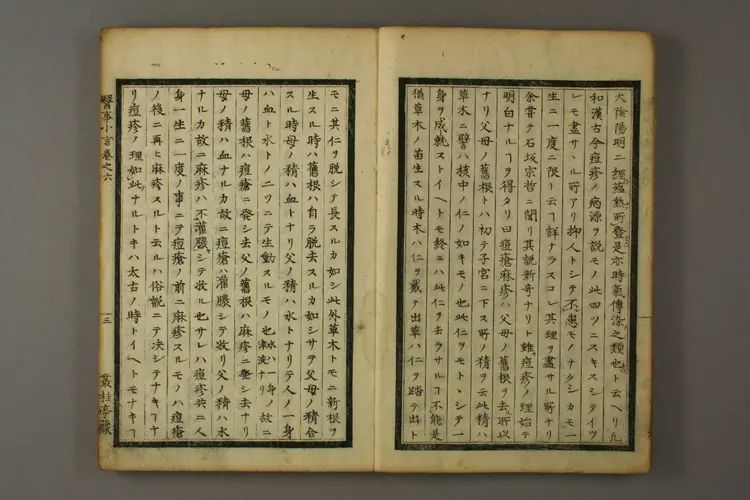 太陰陽明二經蘊熱所發是亦時氣傳染之類也ト云ヘリ凡
和漢古今痘疹ノ病源ヲ説モノ此四ツニスキスシテイツ
レモ盡サヽル所アリ抑人トシテ不患モノナクシカモ一
生ニ一度ニ限ト云ヿ詳ナラスコレ其理ヲ盡サル所ナリ
余嘗テ石坂宗哲ニ聞リ其説新奇ナリト雖痘疹ノ理始テ
明白ナルヿヲ得タリ曰痘瘡麻疹ハ父母ノ舊根ヲ去所以
ナリ父母ノ舊根トハ初テ子宮ニ下ス所ノ精ヲ云此精ハ
草木ニ譬ハ核中ノ仁ノ如キモノ也此仁ヲモトヽシテ一
身ヲ成就ストイヘトモ終ニハ此仁ヲ去ラサルヿ不能是
猶草木ノ苗生スル時木ハ仁ヲ戴テ出草ハ仁ヲ踏テ出ト
モニ其仁ヲ脱シテ長スルカ如シ此外草木トモニ新根ヲ
生スル時ハ舊根ハ自ラ脱去スルカ如シサテ父母ノ精合
スル時母ノ精ハ血トナリ父ノ精ハ水トナリテ人ノ一身
ハ血ト水トノ二ツニテ生動スルモノ也水ハ一身ノ津液ナリ故ニ
母ノ舊根ハ痘瘡ニ発シ去父ノ舊根ハ麻疹ニ発シ去ナリ
母ノ精ハ血ナルカ故ニ痘瘡ハ灌膿シテ收リ父ノ精ハ水
ナルカ故ニ麻疹ハ不灌膿シテ收ル也サレハ痘疹共ニ人
身一生ニ一度ノ事ニテ痘瘡ノ前ニ麻疹スルモノハ痘瘡
ノ後ニ再ヒ麻疹スルト云ルハ俗説ニテ決シテナキヿナ
リ痘疹ノ理如此ナルトキハ太古ノ時トイヘトモナキヿ
醫事小言卷之六
三
叢桂亭藏